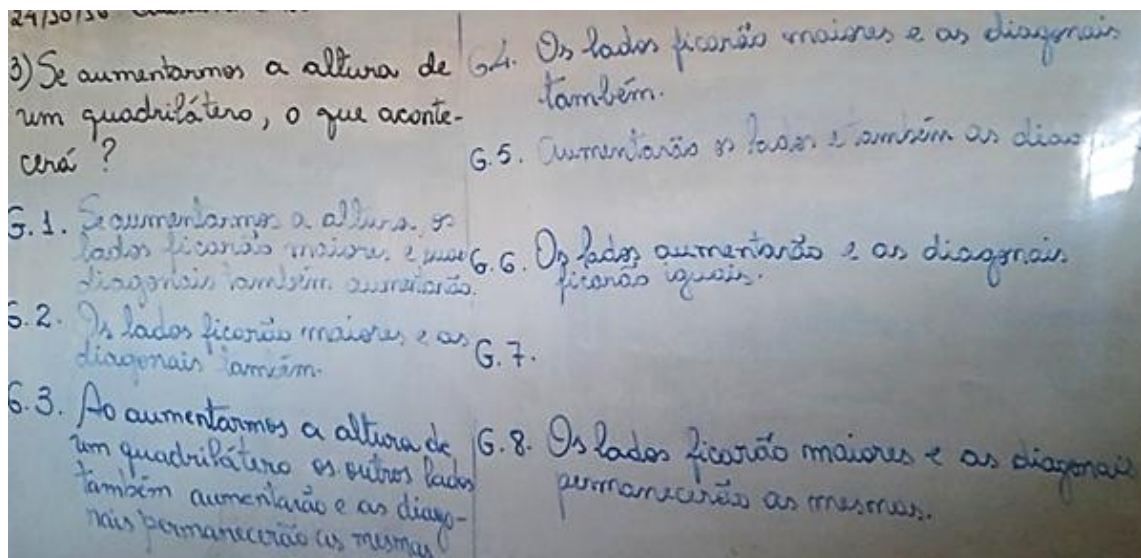 3) Se aumentarmos a altura de
um quadrilátero, o que aconte-
cerá?
G.1. Se aumentarmos a altura, os
lados ficarão maiores e suas
diagonais também aumentarão.
G.2. Os lados ficarão maiores e as
diagonais também.
G.3. Ao aumentarmos a altura de
um quadrilátero os outros lados
também aumentarão e as diago-
nais permanecerão as mesmas
G4. Os lados ficarão maiores e as diagonais
também.
G.5. Aumentarão os lados e também as
G.6. Os lados aumentarão e as diagonais
ficarão iguais.
G.7.
G.8. Os lados ficarão maiores e as diagonais
permanecerão as mesmas.